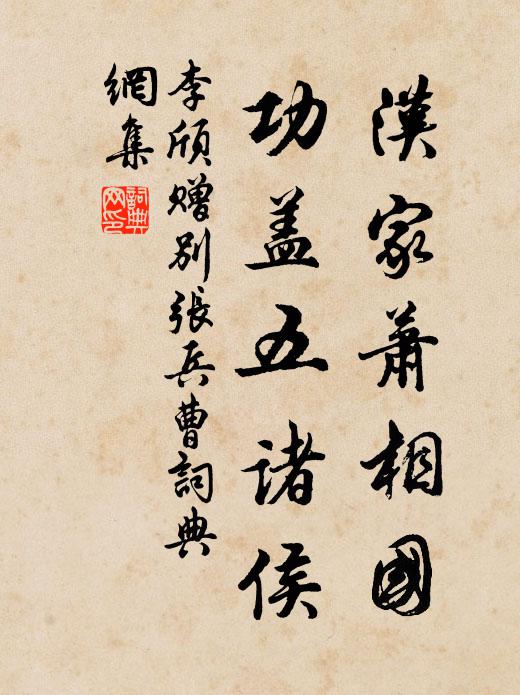 漢家蕭相國
功盖五诸侯
李頎贈别張兵曹詞典
網集
詞典
网印